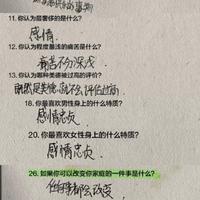 11.你认为最奢侈的是什么?
感情
12.你认为程度最浅的痛苦是什么?
痛苦不分深浅
13.你认为哪种美德被过高的评价?
既然是美德,就不会评估过高
18.你最喜欢男性身上的什么特质?
感情忠贞
20.你最喜欢女性身上的什么特质?
感情忠贞
26.如果你可以改变你家庭的一件事是什么?
任何事都不改变